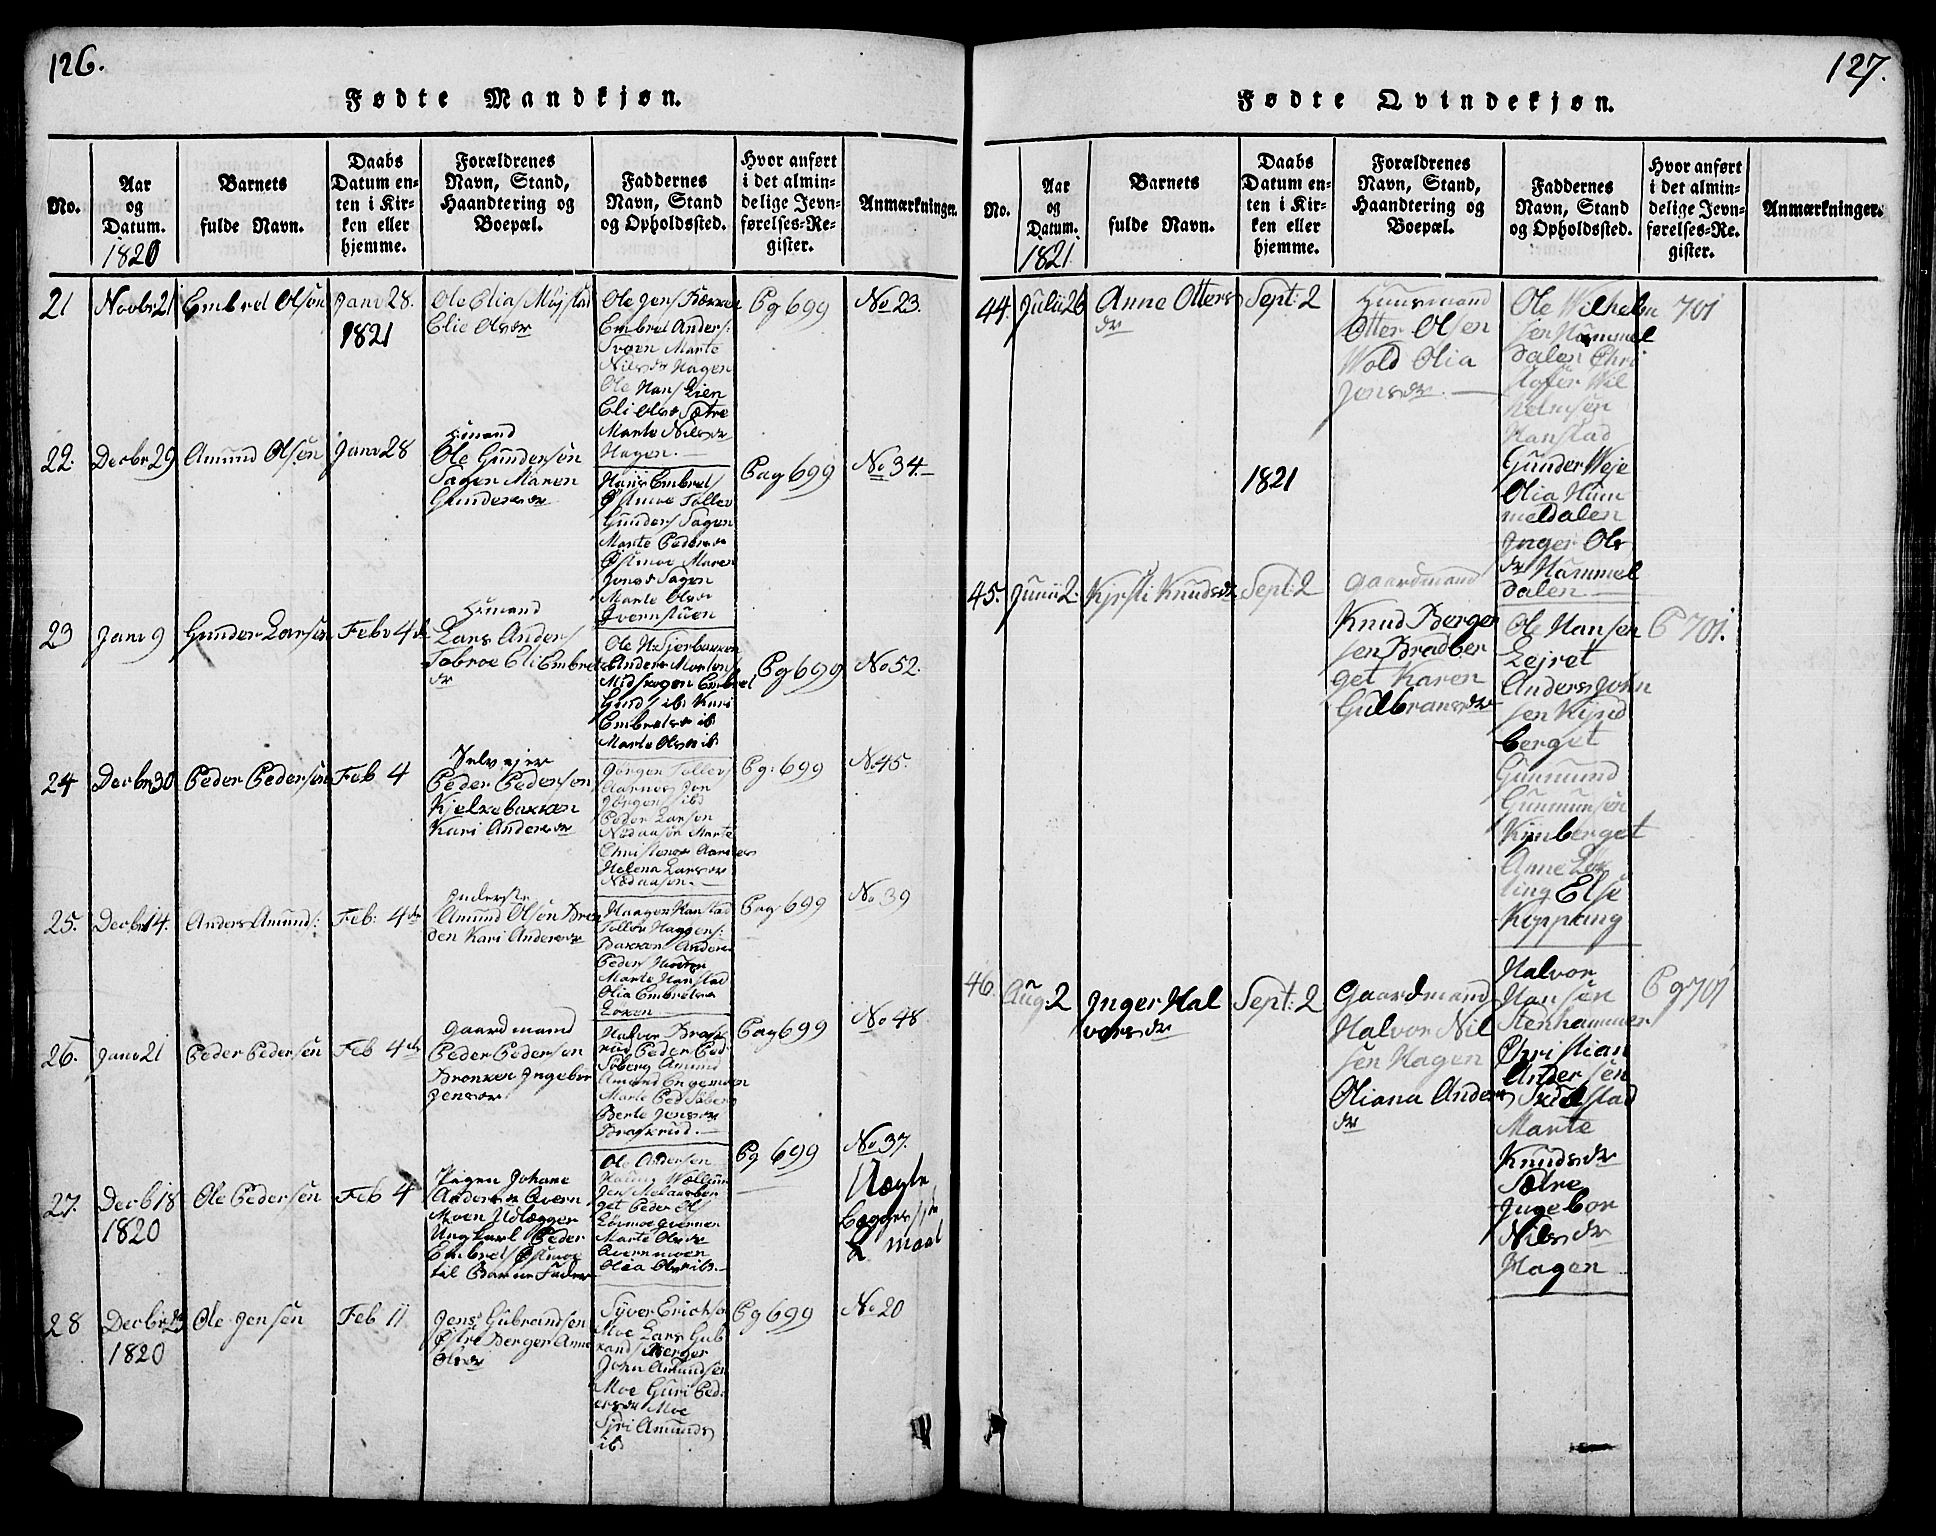 126.
Fødte Mandkjøn.
No.
Aar
og
Datum.
1820
Barnets
fulde Navn.
Daabs
Datum en-
ten i Kir-
ken eller
hjemme.
Forældrenes
Navn, Stand,
Haandtering og
Boepæl.
Faddernes
Navn, Stand
og Opholdssted.
Hvor anført
i det almin-
delige Jevn-
førelses-Re-
gister.
Anmærkninger.
21
Novbr 21
Embret Olsen
Janv 28.
1821
Ole Elias
Elie Olsdr
Ole Jens Bakken
Embret Anders:
Sveen Marte
Nilsdr Hagen
Ole Hans Lien
Eli Olsdr Sætre
Marte Nilsdr
Hagen.
Pg 699
No 23.
22.
Decbr 29
Amund Olsen
Janv 28
Husmand
Ole Gundersen
Sagen Maren
Gundersdr
Hans Embrets
Østmoe Toller
Gunders Sagen
Marte Pedersdr
Østmoe Maren
Jonsdr Sagen
Marte Olsdr
Pag 699
No 34
23
Janv 9
Gunder Larsen
Febr 4de
Husmand
Lars Anders
Tobroe Eli Embrets
dr
Ole
Anders Mortens
Midskogen Embret
ib Kari
Embretsdr ib
Marte Olsdr ib
Pg 699
No 52.
24
Decbr 30
Peder Pedersen
Feb 4
Selvejer
Peder Pedersen
Kjelkebakken
Kari Andersdr
Jørgen Tollers
Aarnes Jon
Jørgens ibd
Peder Larsen
Nødaasen Marte
Christensdr Aarnes
Helena Larsdr
Nødaasen.
Pg: 699
No 45.
25.
Decbr 14.
Anders Amunds:
Feb: 4de
Inderste
Amund Olsen Bra
den Kari Andersdr
Haagen Hanstad
Tollor Haggens:
Bakken Anders
Peders
Marte Hanstad
Olia Embretsdr
Loken
Pag 699
No 39
26.
Janv 21
Peder Pedersen
Feb 4de
Gaardmand
Peder Pedersen
Bronken Ingebor
Jensdr
Halvor Brask
rud Peder Ped
Søberg Amund
Amund Engemoen
Marte Ped Søberg
Berte Jensdr
Braskrud.
Pag 699
No 48
27.
Decb 18
1820
Ole Pedersen
Feb 4
Pigen Johane
Andersdr Qvern
Moen Udlægger
Ungkarl Peder
Embrets Østmoe
til Barne Fader
Ole Andersen
get Peder Ols
Marte Olsdr
Qvernmoen
Olia Olsdr ib.
Pg 699
No 37.
Uægte
Begges 1ste
maal
28
Decbr
1820
Ole Jensen
Feb 11
Jens Gubrandsen
Østre Berger Anne
Olsdr
Syver Erichsen
Moe Lars Gub
rands Berger
John Amundsen
Moe Guri Ped
ersdr Moe
Siri Amunds
ib
Pg 699
No 20
127.
Fødte Qvindekjøn.
No.
Aar
og
Datum.
1821
Barnets
fulde Navn.
Daabs
Datum en-
ten i Kir-
ken eller
hjemme.
Forældrenes
Navn, Stand,
Haandtering og
Boepæl.
Faddernes
Navn, Stand
og Opholdssted.
Hvor anført
i det almin-
delige Jevn-
førelses-Re-
gister.
Anmærkninger.
44.
Julii 26
Anne Otters
dr
Sept: 2
1821
Huusmand
Otter Olsen
Wold Olia
Jensdr.
Ole Wilhelm
sen Hummel
dalen Chri
stoffer Wil
helmsen
Hanstad
Gunder Weje
Olia Hum
meldalen
Inger Ols
dr Hummel
dalen
701
45.
Junii 2.
Kjersti Knudsdr
Sept: 2
Gaardmand
Knud Berger
sen Bradber
get Karen
Gulbransdr
Ole Hansen
Lejret
Anders John
sen Kynd
berget
Gunmund
Gunmunsen
Kynberget
Anne Løv
ling Else
Kopppang
P 701.
46.
Aug: 2
Inger Hal
vorsdr
Sept: 2
Gaardmand
Halvor Nil
sen Hagen
Oliana Anders
dr
Halvor
Hansen
Stenhammer
Christian
Andersen
Marte
Knudsdr
Sætre
Ingebor
Nilsdr
Hagen
Pg 701